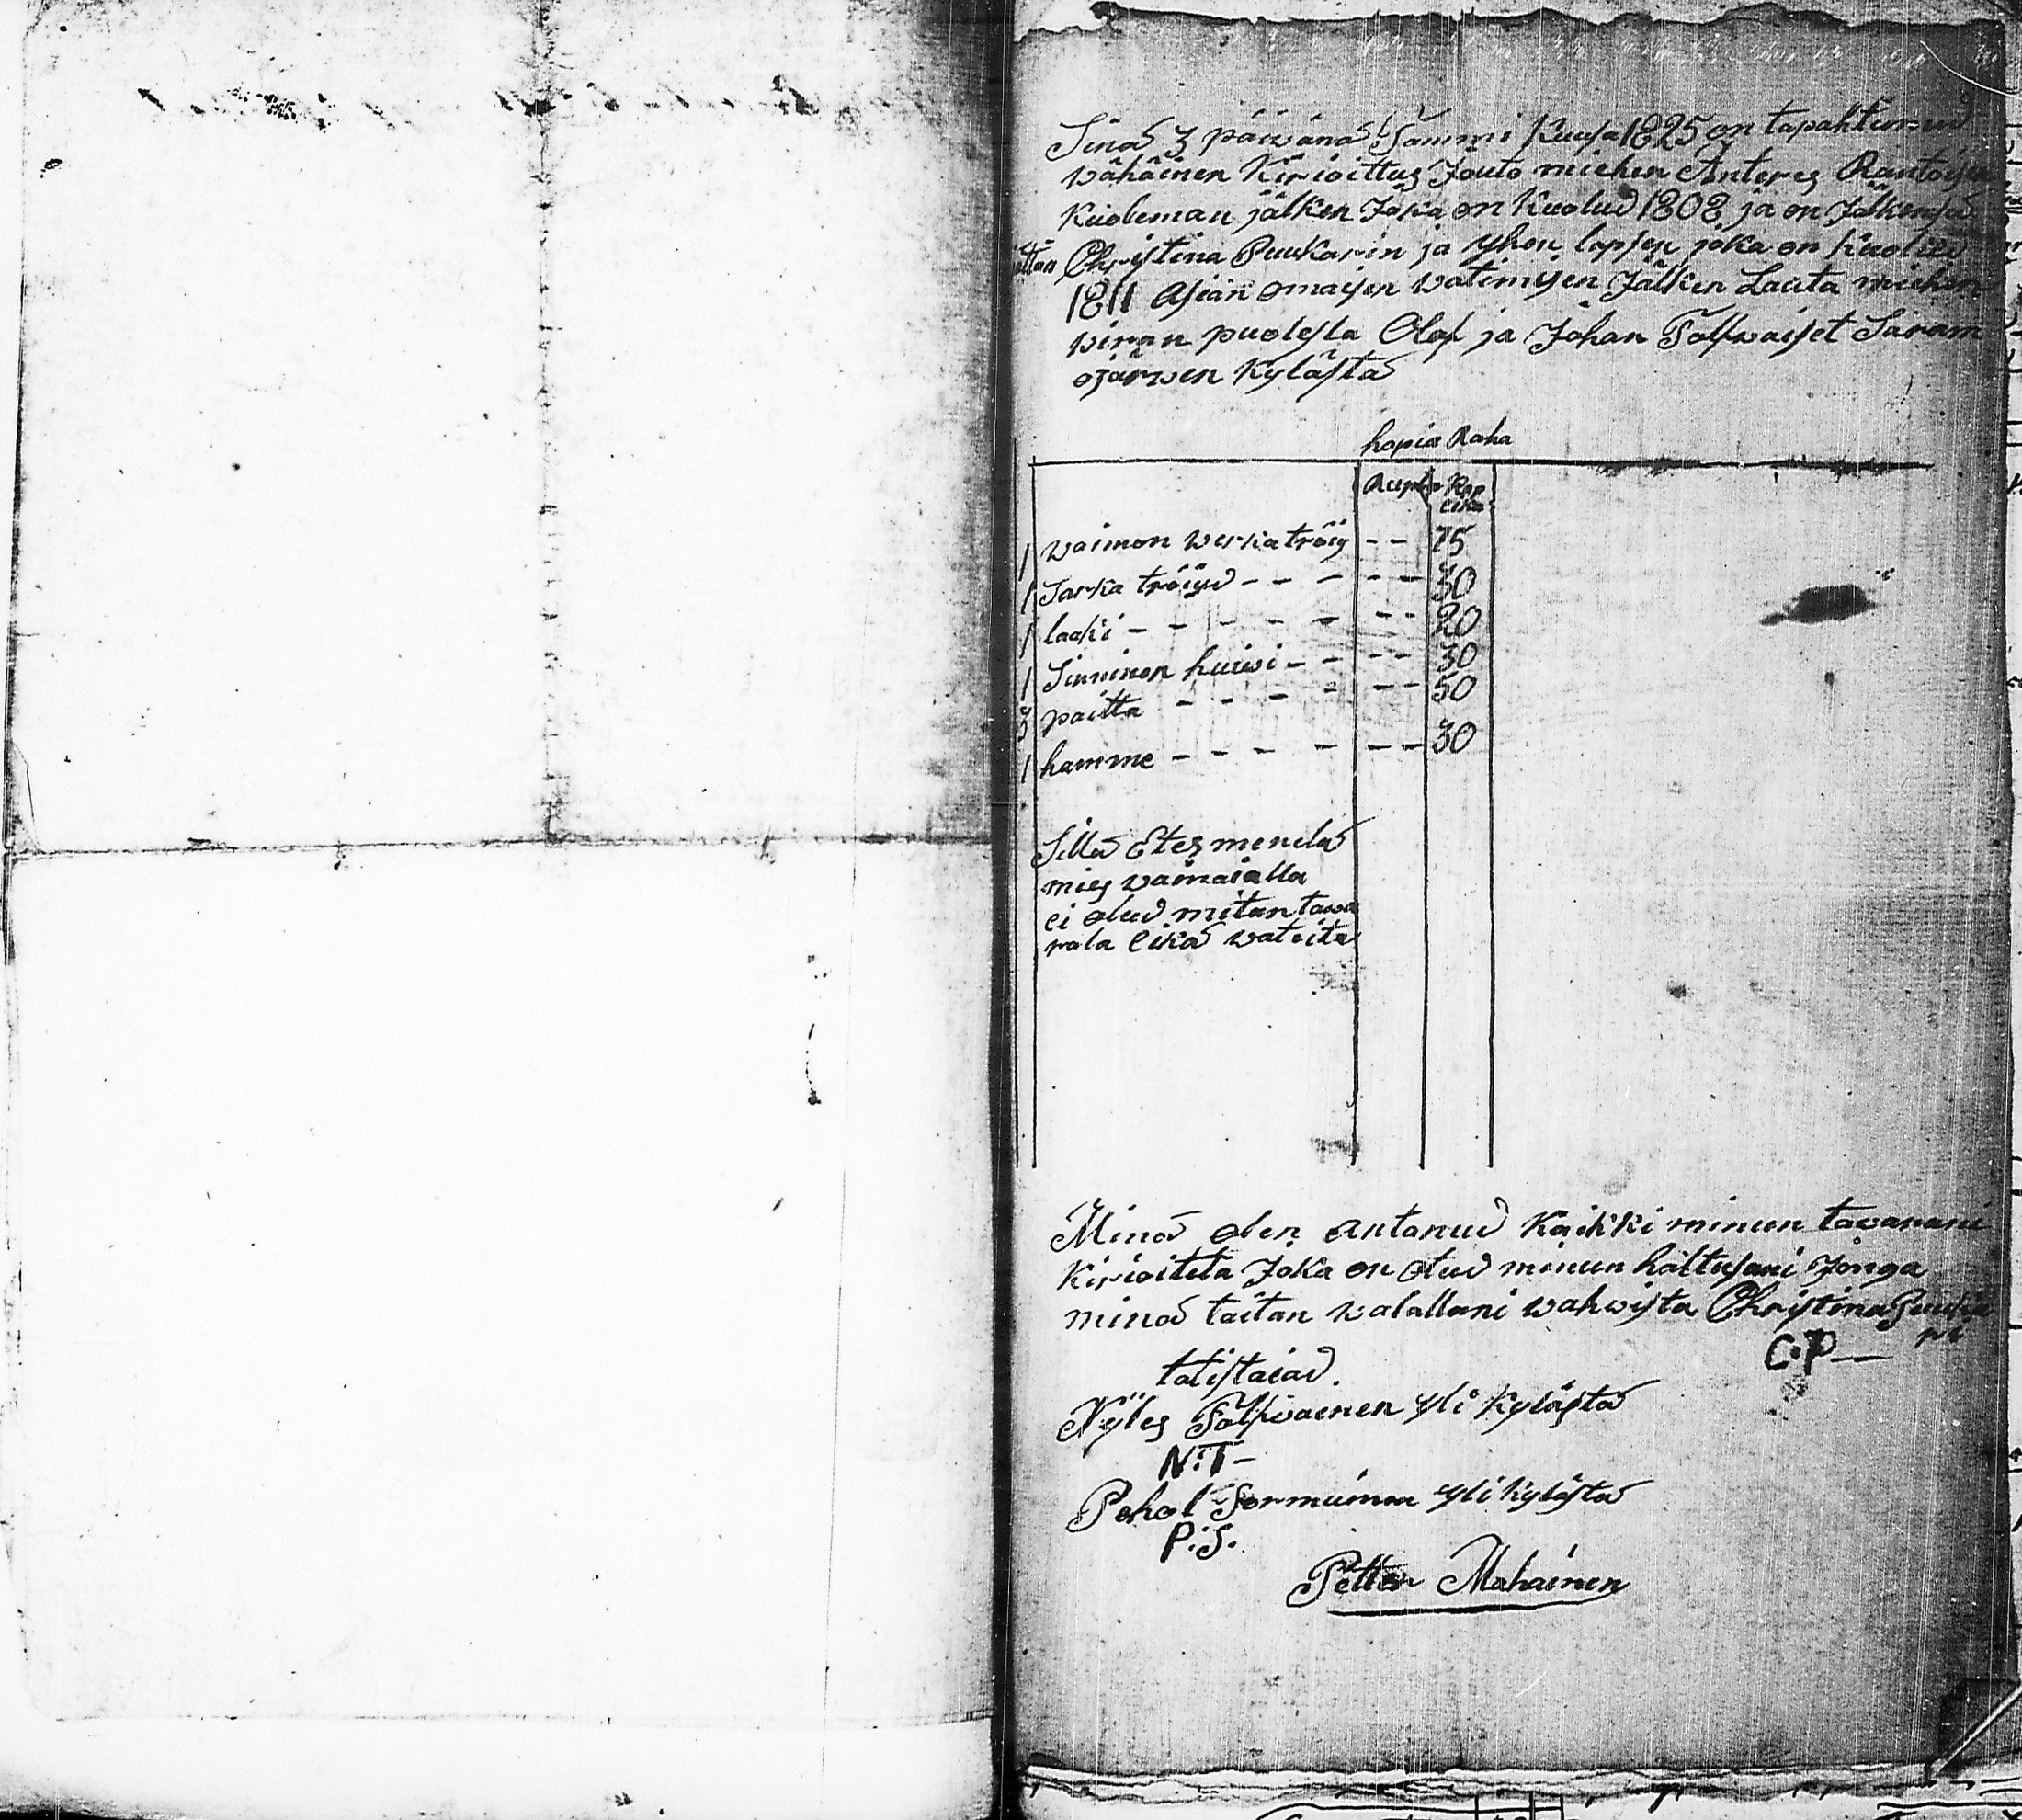 Sinä 3 päiwänä Tammi Kuusa 1825 on tapahtunud
wähäinen Kirioittus Jouto miehen Anteres Rantoisen
Kuoleman jälken Joka on Kuolud 1808 ja on Jälkensä
jättän Christina Puukarin ja yhen lapsen joka on kuolud
1811 Asian omaisen watimisen Jälken Lauta miehen
wiran puolesta Olof ja Johan Tolswaiset Saram
ojärwen Kylästä
hopia Raha
Rupla Kop
eika
1 waimon werka tröiy - - 75
1 Sarka tröiyd - - - - - 30
1 lacki - - - - - - - - 20
1 Sinninen huiwi - - - - 30
3 paitta - - - - - - 50
1 hamme - - - - - - - 30
Sillä Etes menelä
mies wainaialla
ei olud mitan tawa
rala eikä wateita
Minä olen antanud Kaikki minun tawarani
Kirioiteta Joka on olud minun haltusani Jonga
minä taitan walallani wahwista Christina Puuka
ri
C.P—
totistaiad.
Nyles Tolswainen yli Kylästä
N:T-
Pohal Sormuinen yli Kylästä
P:S.
Petter Mahoinen